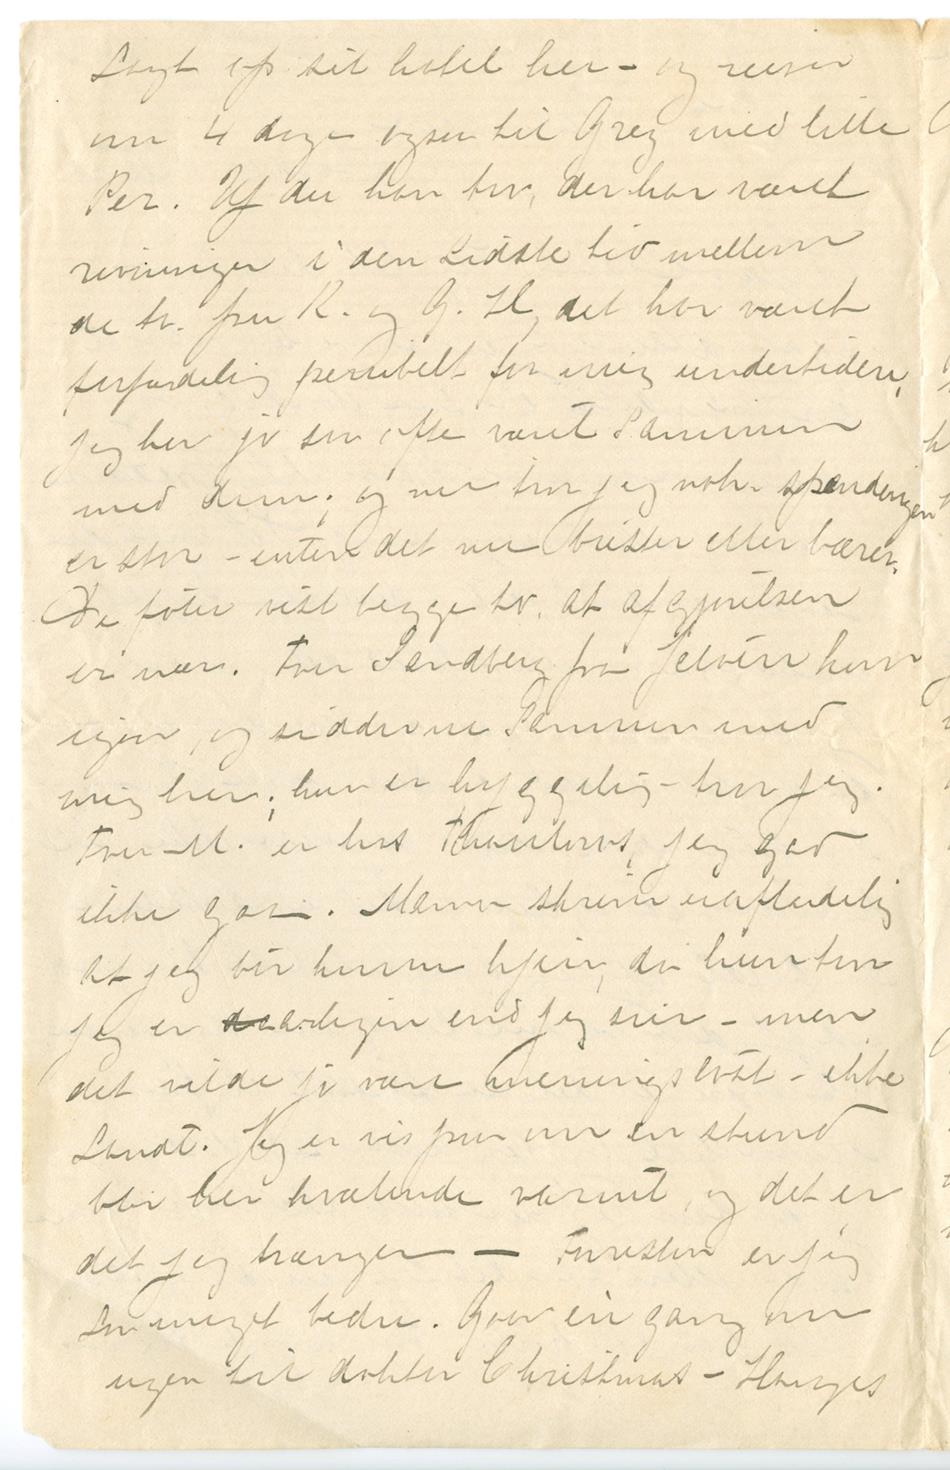 Sagt op sit hotel her - og reiser
om 4 dage ogsaa til Grez med lille
Per. Uf du kan tro, der har været
rivninger i den sidste tid mellem
de to. fru K. og G. H, det har været
forfærdelig penibelt for mig undertiden,
jeg har jo saa ofte været sammen
med dem; og nu tror jeg nok spændingen
er stor - enten det nu brister eller bærer.
De føler vist begge to, at afgjørelsen
er nær. Fru Sandberg fra kom
igjen, og sidder nu sammen med
mig her; hun er hyggelig - tror jeg.
Fru M. er hos Thaulows, jeg gad
ikke gaa. Mama skriver uafladelig
at jeg bør komme hjem, da hun tror
jeg er daarligere end jeg sier - men
det vilde jo være meningsløst - ikke
Sandt. Jeg er vis paa om en stund
blir her kvælende varmt, og det er
det jeg trænger — Forresten er jeg
saa meget bedre. Gaar en gang om
ugen til doktor Christmas -